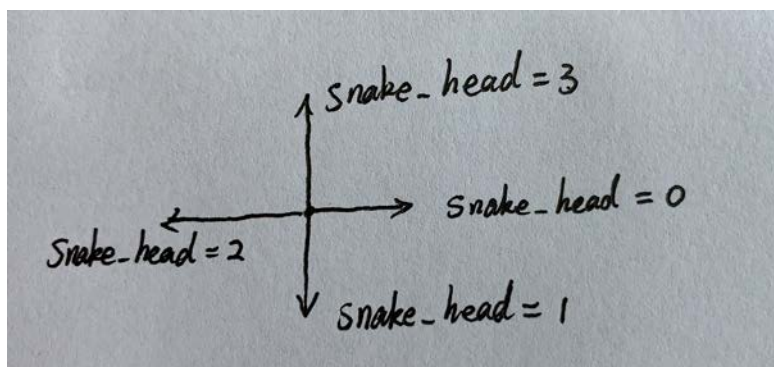 snake_head = 3
snake_head = 0
Snake_head = 2
snake_head = 1